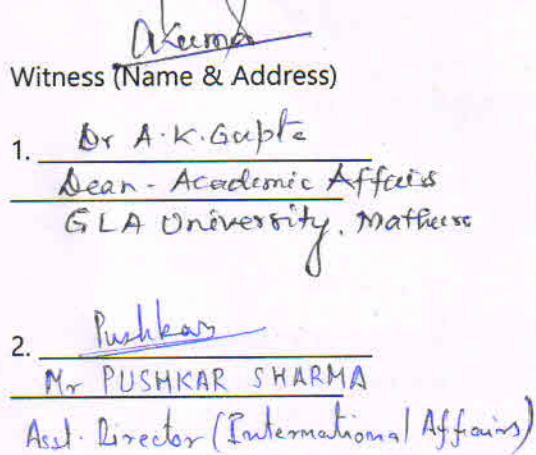 AKumar
Witness (Name & Address)
1. Dr A.K. Gupta
Dean - Academic Affairs
GLA University, Mathura
2. Pushkar
Mr PUSHKAR SHARMA
Asst. Director (International Affairs)